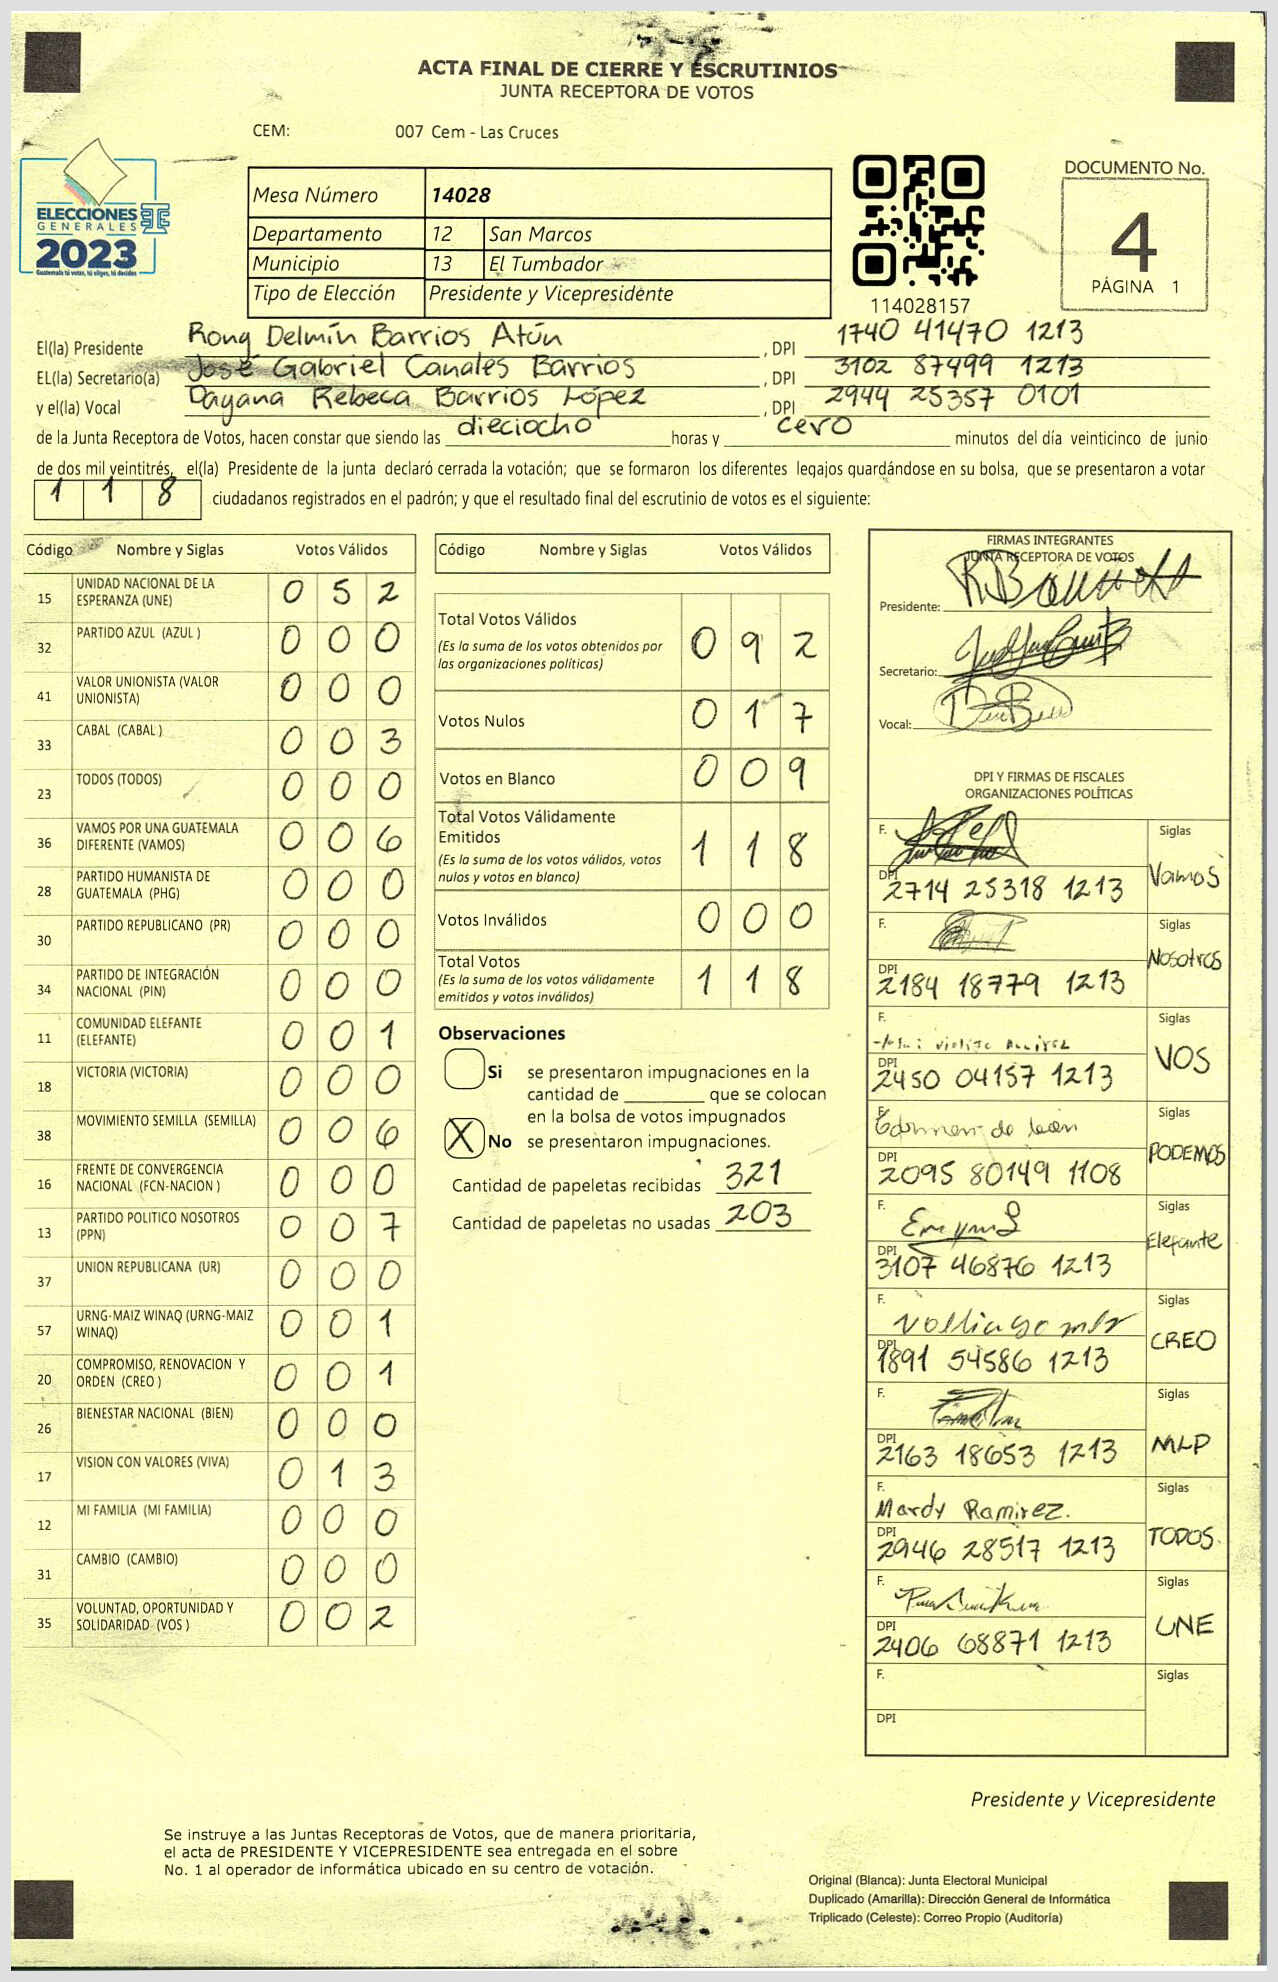 ACTA FINAL DE CIERRE Y ESCRUTINIOS
JUNTA RECEPTORA DE VOTOS
CEM: 007 Cem - Las Cruces
ELECCIONES
GENERALES
2023
Guatemala tú votas, tú eliges, tú decides
Mesa Número 14028
Departamento 12 San Marcos
Municipio 13 El Tumbador
Tipo de Elección Presidente y Vicepresidente
114028157
DOCUMENTO No.
4
PÁGINA 1
El(la) Presidente Rony Delmín Barrios Atún , DPI 1740 41470 1213
EL(la) Secretario(a) José Gabriel Canales Barrios , DPI 3102 87499 1213
y el(la) Vocal Dayana Rebeca Barrios López , DPI 2944 25357 0101
de la Junta Receptora de Votos, hacen constar que siendo las dieciocho horas y cero minutos del día veinticinco de junio
de dos mil veintitrés, el(la) Presidente de la junta declaró cerrada la votación; que se formaron los diferentes legajos guardándose en su bolsa, que se presentaron a votar
1 1 8 ciudadanos registrados en el padrón; y que el resultado final del escrutinio de votos es el siguiente:
Código Nombre y Siglas Votos Válidos
15 UNIDAD NACIONAL DE LA ESPERANZA (UNE) 0 5 2
32 PARTIDO AZUL (AZUL ) 0 0 0
41 VALOR UNIONISTA (VALOR UNIONISTA) 0 0 0
33 CABAL (CABAL ) 0 0 3
23 TODOS (TODOS) 0 0 0
36 VAMOS POR UNA GUATEMALA DIFERENTE (VAMOS) 0 0 6
28 PARTIDO HUMANISTA DE GUATEMALA (PHG) 0 0 0
30 PARTIDO REPUBLICANO (PR) 0 0 0
34 PARTIDO DE INTEGRACIÓN NACIONAL (PIN) 0 0 0
11 COMUNIDAD ELEFANTE (ELEFANTE) 0 0 1
18 VICTORIA (VICTORIA) 0 0 0
38 MOVIMIENTO SEMILLA (SEMILLA) 0 0 6
16 FRENTE DE CONVERGENCIA NACIONAL (FCN-NACION ) 0 0 0
13 PARTIDO POLITICO NOSOTROS (PPN) 0 0 7
37 UNION REPUBLICANA (UR) 0 0 0
57 URNG-MAIZ WINAQ (URNG-MAIZ WINAQ) 0 0 1
20 COMPROMISO, RENOVACION Y ORDEN (CREO ) 0 0 1
26 BIENESTAR NACIONAL (BIEN) 0 0 0
17 VISION CON VALORES (VIVA) 0 1 3
12 MI FAMILIA (MI FAMILIA) 0 0 0
31 CAMBIO (CAMBIO) 0 0 0
35 VOLUNTAD, OPORTUNIDAD Y SOLIDARIDAD (VOS ) 0 0 2
Código Nombre y Siglas Votos Válidos
Total Votos Válidos 0 9 2
(Es la suma de los votos obtenidos por
las organizaciones políticas)
Votos Nulos 0 1 7
Votos en Blanco 0 0 9
Total Votos Válidamente
Emitidos 1 1 8
(Es la suma de los votos válidos, votos
nulos y votos en blanco)
Votos Inválidos 0 0 0
Total Votos 1 1 8
(Es la suma de los votos válidamente
emitidos y votos inválidos)
Observaciones
Si se presentaron impugnaciones en la
cantidad de ________ que se colocan
en la bolsa de votos impugnados
X No se presentaron impugnaciones.
Cantidad de papeletas recibidas 321
Cantidad de papeletas no usadas 203
FIRMAS INTEGRANTES
JUNTA RECEPTORA DE VOTOS
Presidente:
Secretario:
Vocal:
DPI Y FIRMAS DE FISCALES
ORGANIZACIONES POLÍTICAS
F. Siglas
DPI 2714 25318 1213 Vamos
F. Siglas
DPI 2184 18779 1213 Nosotros
F. Siglas
DPI 2450 04157 1213 VOS
F. de león Siglas
DPI 2095 80149 1108 PODEMOS
F. Siglas
DPI 3107 46876 1213 Elefante
F. Siglas
DPI 1891 54586 1213 CREO
F. Siglas
DPI 2163 18653 1213 MLP
F. Mardy Ramirez. Siglas
DPI 2946 28517 1213 TODOS.
F. Siglas
DPI 2406 68871 1213 UNE
F. Siglas
DPI
Presidente y Vicepresidente
Se instruye a las Juntas Receptoras de Votos, que de manera prioritaria,
el acta de PRESIDENTE Y VICEPRESIDENTE sea entregada en el sobre
No. 1 al operador de informática ubicado en su centro de votación.
Original (Blanca): Junta Electoral Municipal
Duplicado (Amarilla): Dirección General de Informática
Triplicado (Celeste): Correo Propio (Auditoría)